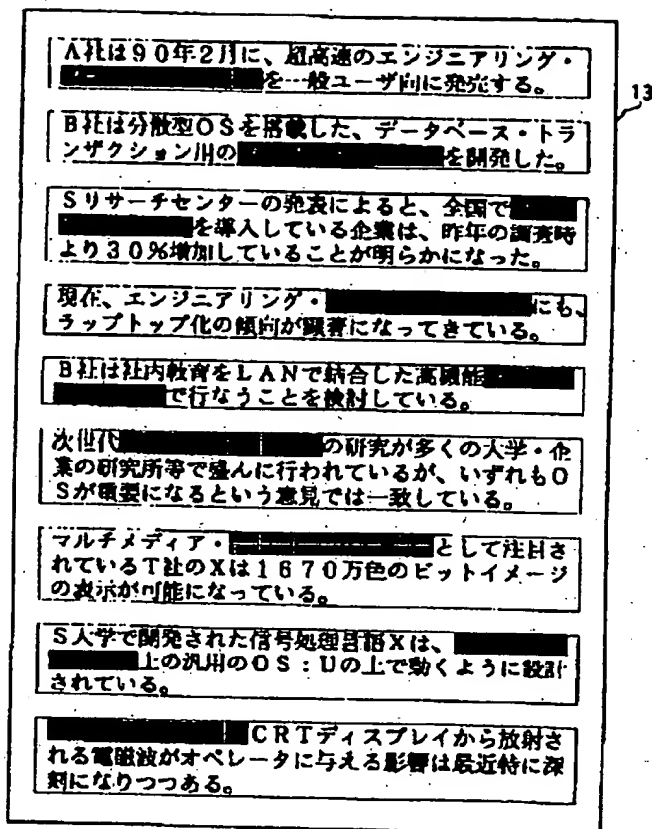 A社は90年2月に、超高速のエンジニアリング・
を一般ユーザ向に発売する。
13
B社は分散型OSを搭載した、データベース・トラ
ンザクション用の を開発した。
Sリサーチセンターの発表によると、全国で
を導入している企業は、昨年の調査時
より30%増加していることが明らかになった。
現在、エンジニアリング・ にも、
ラップトップ化の傾向が顕著になってきている。
B社は社内教育をLANで結合した高機能
で行なうことを検討している。
次世代 の研究が多くの大学・企
業の研究所等で盛んに行われているが、いずれもO
Sが重要になるという意見では一致している。
マルチメディア・ として注目さ
れているT社のXは1670万色のビットイメージ
の表示が可能になっている。
S大学で開発された信号処理言語Xは、
上の汎用のOS:Uの上で動くように設計
されている。
CRTディスプレイから放射さ
れる電磁波がオペレータに与える影響は最近特に深
刻になりつつある。